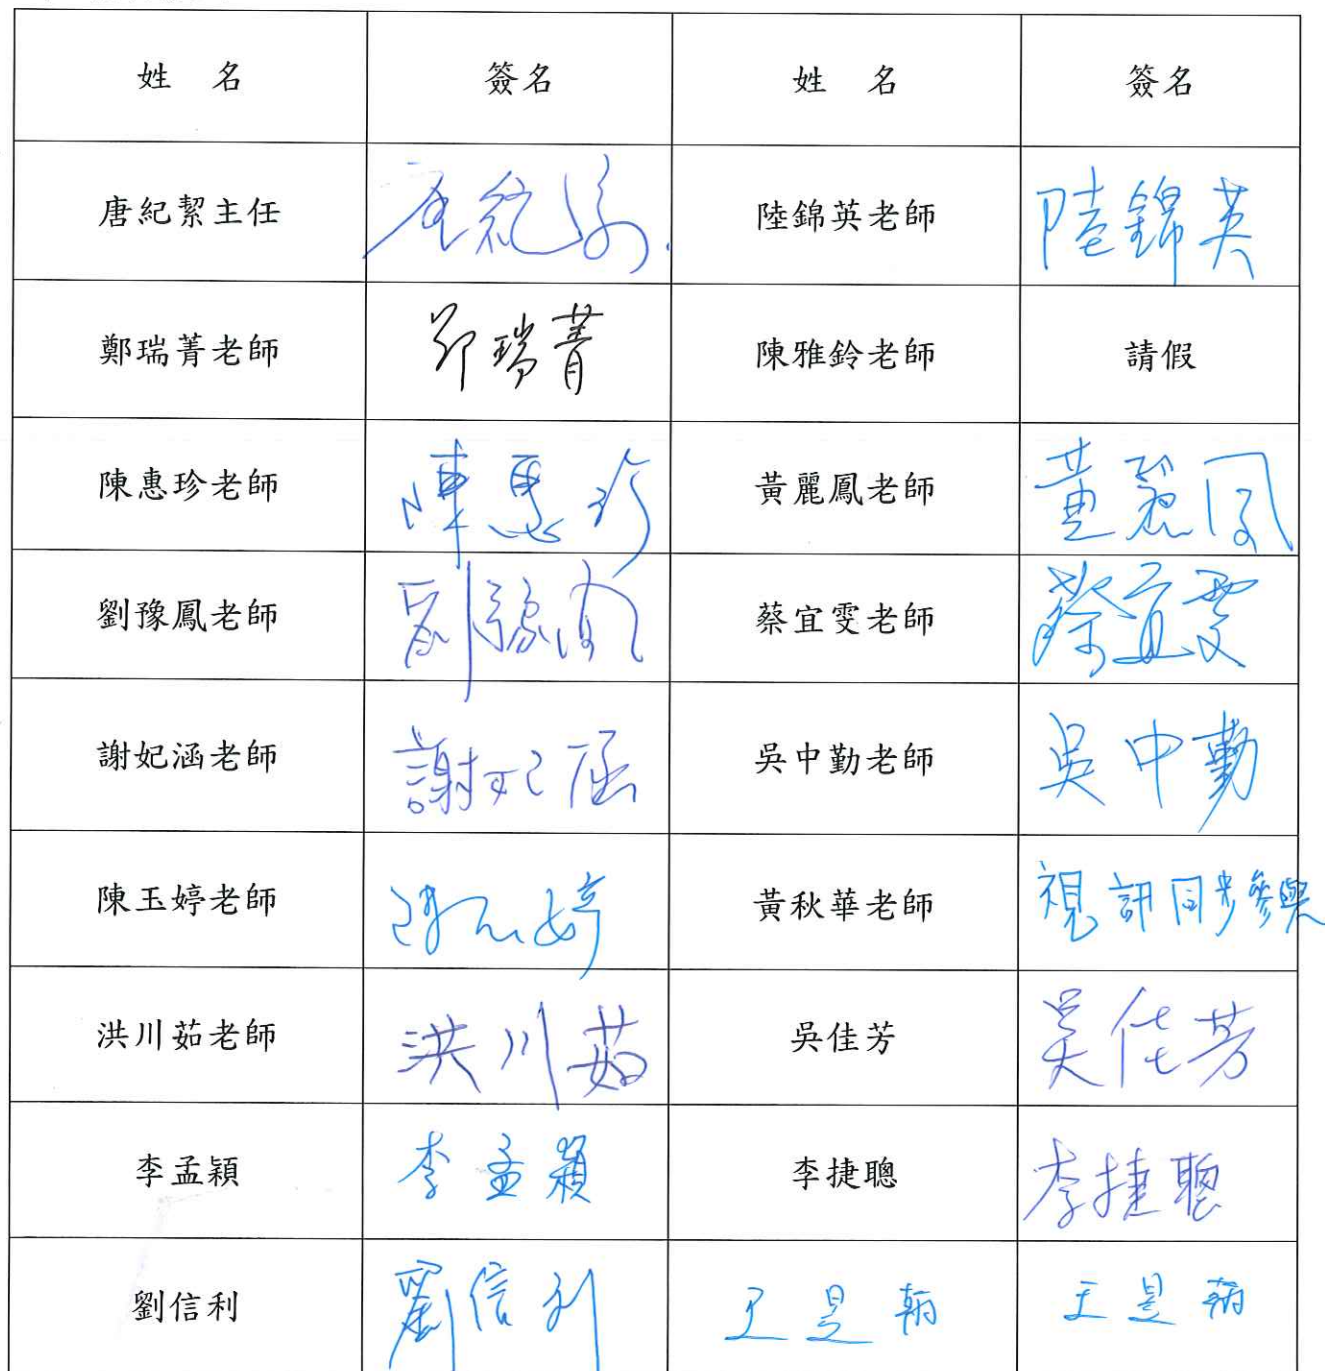 姓 名 簽名 姓 名 簽名
唐紀絜主任 唐紀絜 陸錦英老師 陸錦英
鄭瑞菁老師 鄭瑞菁 陳雅鈴老師 請假
陳惠珍老師 陳惠珍 黃麗鳳老師 黃麗鳳
劉豫鳳老師 劉豫鳳 蔡宜雯老師 蔡宜雯
謝妃涵老師 謝妃涵 吳中勤老師 吳中勤
陳玉婷老師 陳玉婷 黃秋華老師 視訊同步參與
洪川茹老師 洪川茹 吳佳芳 吳佳芳
李孟穎 李孟穎 李捷聰 李捷聰
劉信利 劉信利 王昱 王昱